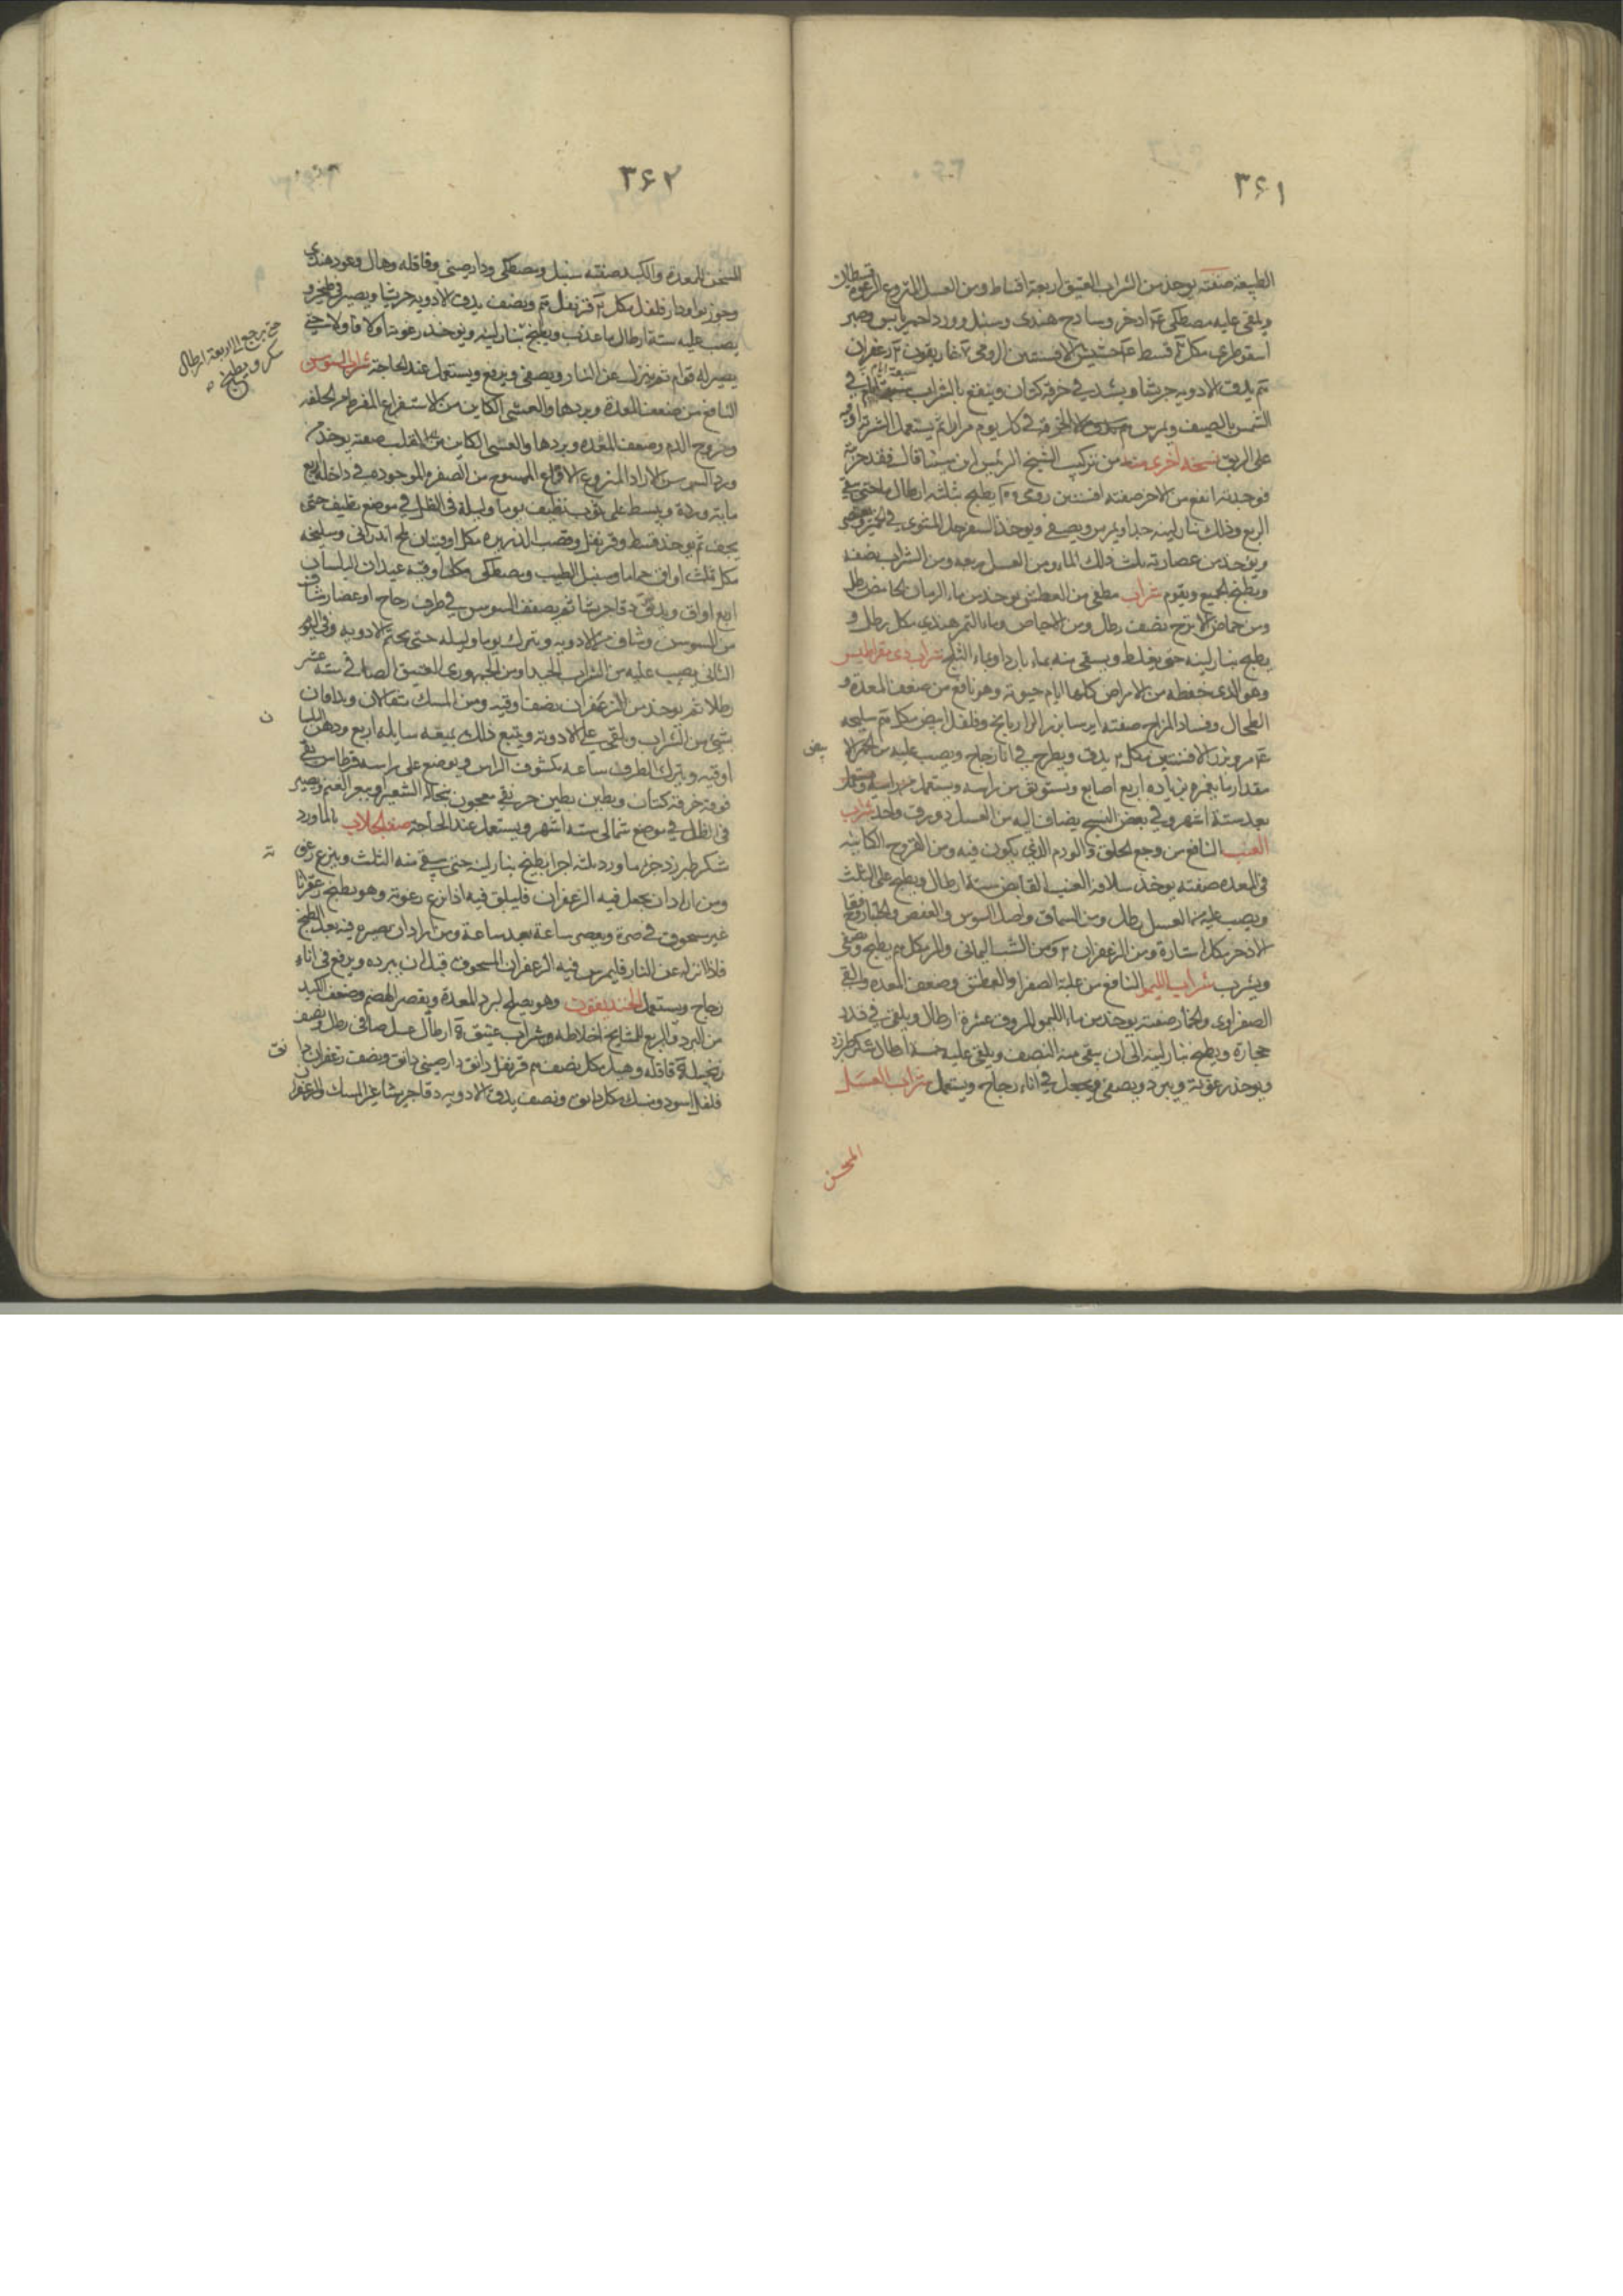 ٣۶١
الطبيعة صفته يوخذ من الشراب العتيق اربعة اقساط ومن العسل المنزوع الرغوة قسطان
ويلقى عليه مصطكى اذخر وساذج هندى وسنبل وورد احمر يابس وصبر
اسقوطرى مكل قسط حشيش الافسنتين الرومى غاريقون زعفران
يدق الادوية جريشا ويشد في خرقة كتان وينقع بالشراب سبعة ايام في
الشمس بالصيف ويمرس الخرقة في كل يوم مرارا ثم يستعمل الشربة اوقية
على الريق نسخة اخرى منه من تركيب الشيخ الرئيس ابن سينا قال فقد جربته
فوجدته انفع من الاخر صفته افسنتين رومى يطبخ بثلثة ارطال ماء حتى يبقى
الربع وذلك بنار لينة جدا ويمرس ويصفى ويوخذ السفرجل المشوى في الخمير
ويوخذ من عصارته ثلث ذلك الماء ومن العسل ربعه ومن الشراب نصفه
ويطبخ الجميع ويقوم شراب مطفى من العطش يوخذ من ماء الرمان الحامض رطل
ومن حماض الاترج نصف رطل ومن الاجاص وماء التمر هندى مكل رطل و
يطبخ بنار لينة حتى يغلظ ويسقى منه بماء بارد او بماء الثلج شراب ديمقراطيس
وهو الذى حفظه من الامراض كلها ايام حيوته وهو نافع من ضعف المعدة و
الطحال وفساد المزاج صفته ايرسا بزر الرازيانج وفلفل ابيض مكل سليخه
مر وبزر الافسنتين مكل يدق ويطرح في اناء زجاج ويصب عليه من الخمر الا
بيض
مقدار ما يغمره بزياده اربع اصابع ويستوثق من راسه ويستعمل
بعد ستة اشهر وفي بعض النسخ يضاف اليه من العسل دورق واحد شراب
العنب النافع من وجع الحلق والورم الذي يكون فيه ومن القروح الكاينه
في المعده صفته يوخذ سلافة العنب القابض ستة ارطال ويطبخ على الثلث
ويصب عليه من العسل رطل ومن السماق واصل السوس والعفص
الاذخر مكل استارة ومن الزعفران ومن الشب اليمانى والمر مكل يطبخ ويصفى
ويشرب شراب الليمو النافع من غلبة الصفرا والعطش وضعف المعده والقى
الصفراوى والخمار صفته يوخذ من ماء الليمو المروق عشرة ارطال ويلقى في قدر
حجارة ويطبخ بنار لينة الى ان يبقى منه النصف ويلقى عليه خمسة ارطال سكر طبرزد
ويوخذ رغوته ويبرد ويصفى ويجعل في اناء زجاج ويستعمل شراب العسل
المسخن
٣۶٢
المسخن للمعدة والكبد صفته سنبل ومصطكى ودارصينى وقاقله وهال وعود هندى
وجوز بوا ودار فلفل مكل قرنفل ونصف يدق الادويه جريشا ويصير في طنجير و
يصب عليه ستة ارطال ماء عذب ويطبخ بنار لينه ويوخذ رغوته اولا فاولا حتى
حتى يرجع الى اربعة ارطال
سكر ويطبخ
يصير له قوام ثم ينزل عن النار ويصفى ويرفع ويستعمل عند الحاجة شراب السوسن
النافع من ضعف المعدة وبردها والغشى الكاين من الاستفراغ المفرط
وخروج الدم وضعف المعده وبردها والغشى الكاين من القلب صفته يوخذ من
ورد السوسن الازاد المنزوع الاقماع الممسوح من الصفرة الموجوده في داخله اربع
مايه ورده ويبسط على ثوب نظيف يوما وليلة في الظل في موضع نظيف حتى
يجف ثم يوخذ قسط وقرنفل وقصب الذريره مكل اوقيتان ملح اندرانى وسليخه
مكل ثلث اواق حماما وسنبل الطيب ومصطكى مكل اوقيه عيدان البلسان
اربع اواق ويدق دقا جريشا ثم يصفف السوسن في ظرف زجاج او غضار
من السوسن وشاف من الادويه ويترك يوما وليله حتى الادويه وفي اليوم
الثانى يصب عليه من الشراب الجيد او من الجمهورى العتيق الصافى ستة عشر
رطلا ثم يوخذ من الزعفران نصف اوقيه ومن المسك مثقالان ويدافان
بشى من الشراب ويلقى على الادويه ويتبع ذلك بميعه سايله اربع ودهن البلسان
ن
اوقيه ويترك الظرف ساعه مكشوف الراس ويوضع على راسه قرطاس نقى
فوقه خرقة كتان ويطين بطين حر نقى معجون بنخالة الشعير وببعر الغنم ويصير
في الظل في موضع شمالى ستة اشهر ويستعمل عند الحاجة صفة الجلاب بالماورد
سكر طبرزد جزء ماورد ثلثه اجزا يطبخ بنار لينه حتى يبقى منه الثلث وينزع رغو
ته
ومن اراد ان يجعل فيه الزعفران فليلق فيه اذا نزع رغوته وهو يطبخ زعفرانا
غير مسحوق في صرة ويعصر ساعة بعد ساعة ومن اراد ان يصيره فيه بعد الطبخ
فاذا انزله عن النار فليمرس فيه الزعفران المسحوق قبل ان يبرده ويرفع في اناء
زجاج ويستعمل الخنديقون وهو يصلح لبرد المعدة ويقصر الهضم وضعف الكبد
من البرد والربع للمشايخ اخلاطه شراب عتيق ارطال عسل صافى رطل ونصف
زنجبيل قاقله وهيل مكل نصف قرنفل دانق دارصينى دانق ونصف زعفران دا
نق
فلفل اسود ومسك مكل دانق ونصف يدق الادويه دقا جريشا غير المسك والزعفران